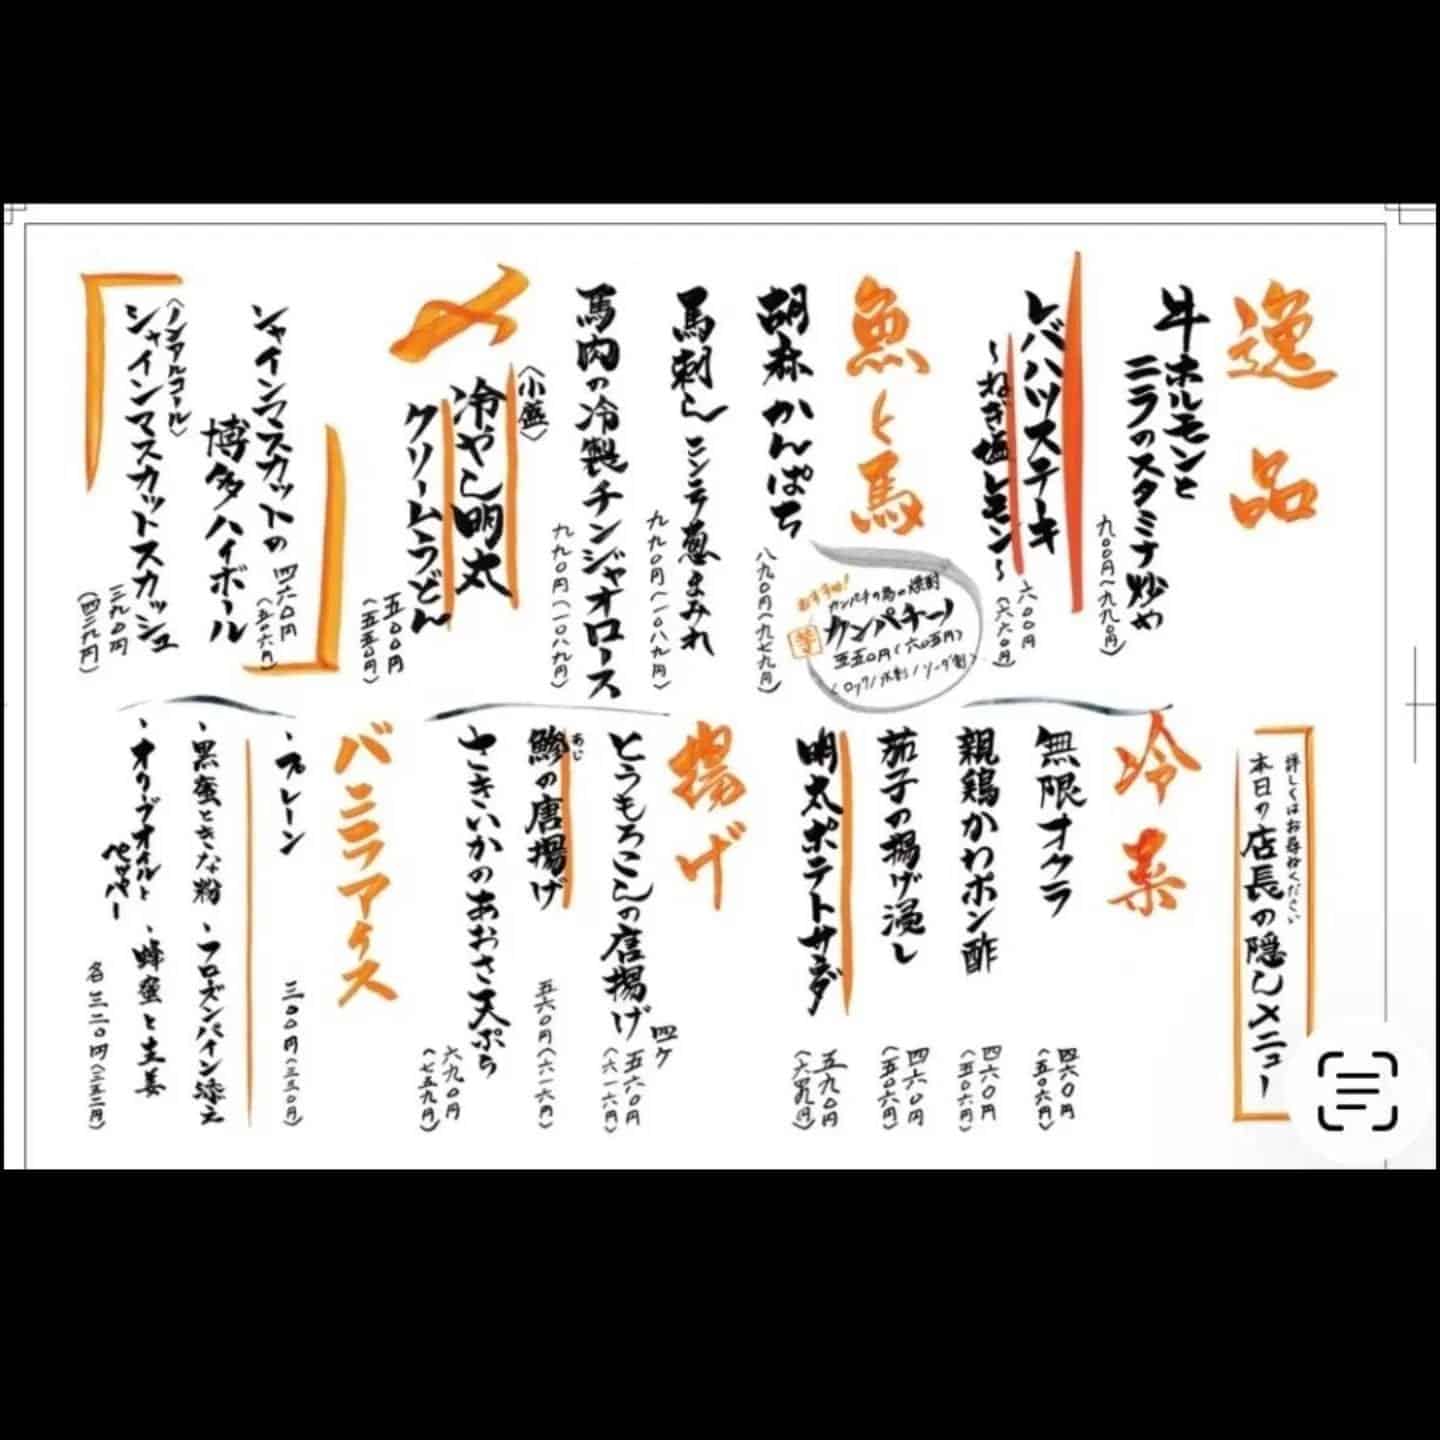 逸品
牛ホルモンと
ニラのスタミナ炒め
九〇〇円(九九〇円)
レバハツステーキ
~ねぎ塩レモン~
六〇〇円
(六六〇円)
魚と馬
胡麻かんぱち
八九〇円(九七九円)
おすすめ!
カンパチの為の焼酎
カンパチーノ
五五〇円(六〇五円)
(ロック/水割/ソーダ割)
馬刺し ニンニク葱まみれ
九九〇円(一〇八九円)
馬肉の冷製チンジャオロース
九九〇円(一〇八九円)
〆
(小盛)
冷やし明太
クリームうどん
五〇〇円
(五五〇円)
シャインマスカットの
博多ハイボール
四六〇円
(五〇六円)
(ノンアルコール)
シャインマスカットスカッシュ
三九〇円
(四二九円)
詳しくはお尋ねください
本日の店長の隠しメニュー
冷菜
無限オクラ
四六〇円
(五〇六円)
親鶏かわポン酢
四六〇円
(五〇六円)
茄子の揚げ浸し
四六〇円
(五〇六円)
明太ポテトサラダ
五九〇円
(六四九円)
揚げ
とうもろこしの唐揚げ
四ケ
五六〇円
(六一六円)
あじ
鯵の唐揚げ
五六〇円(六一六円)
さきいかのあおさ天ぷら
六九〇円
(七五九円)
バニラアイス
、プレーン
三〇〇円(三三〇円)
、黒蜜ときな粉
、フローズンパイン添え
、オリーブオイルと
ペッパー
、蜂蜜と生姜
各三二〇円(三五二円)